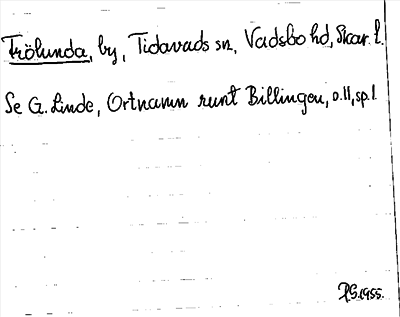 Frölunda, by, Tidavads sn, Vadsbo hd, Skar. l.
Se G. Linde, Ortnamn runt Billingen, s. 11, sp. 1.
1955.